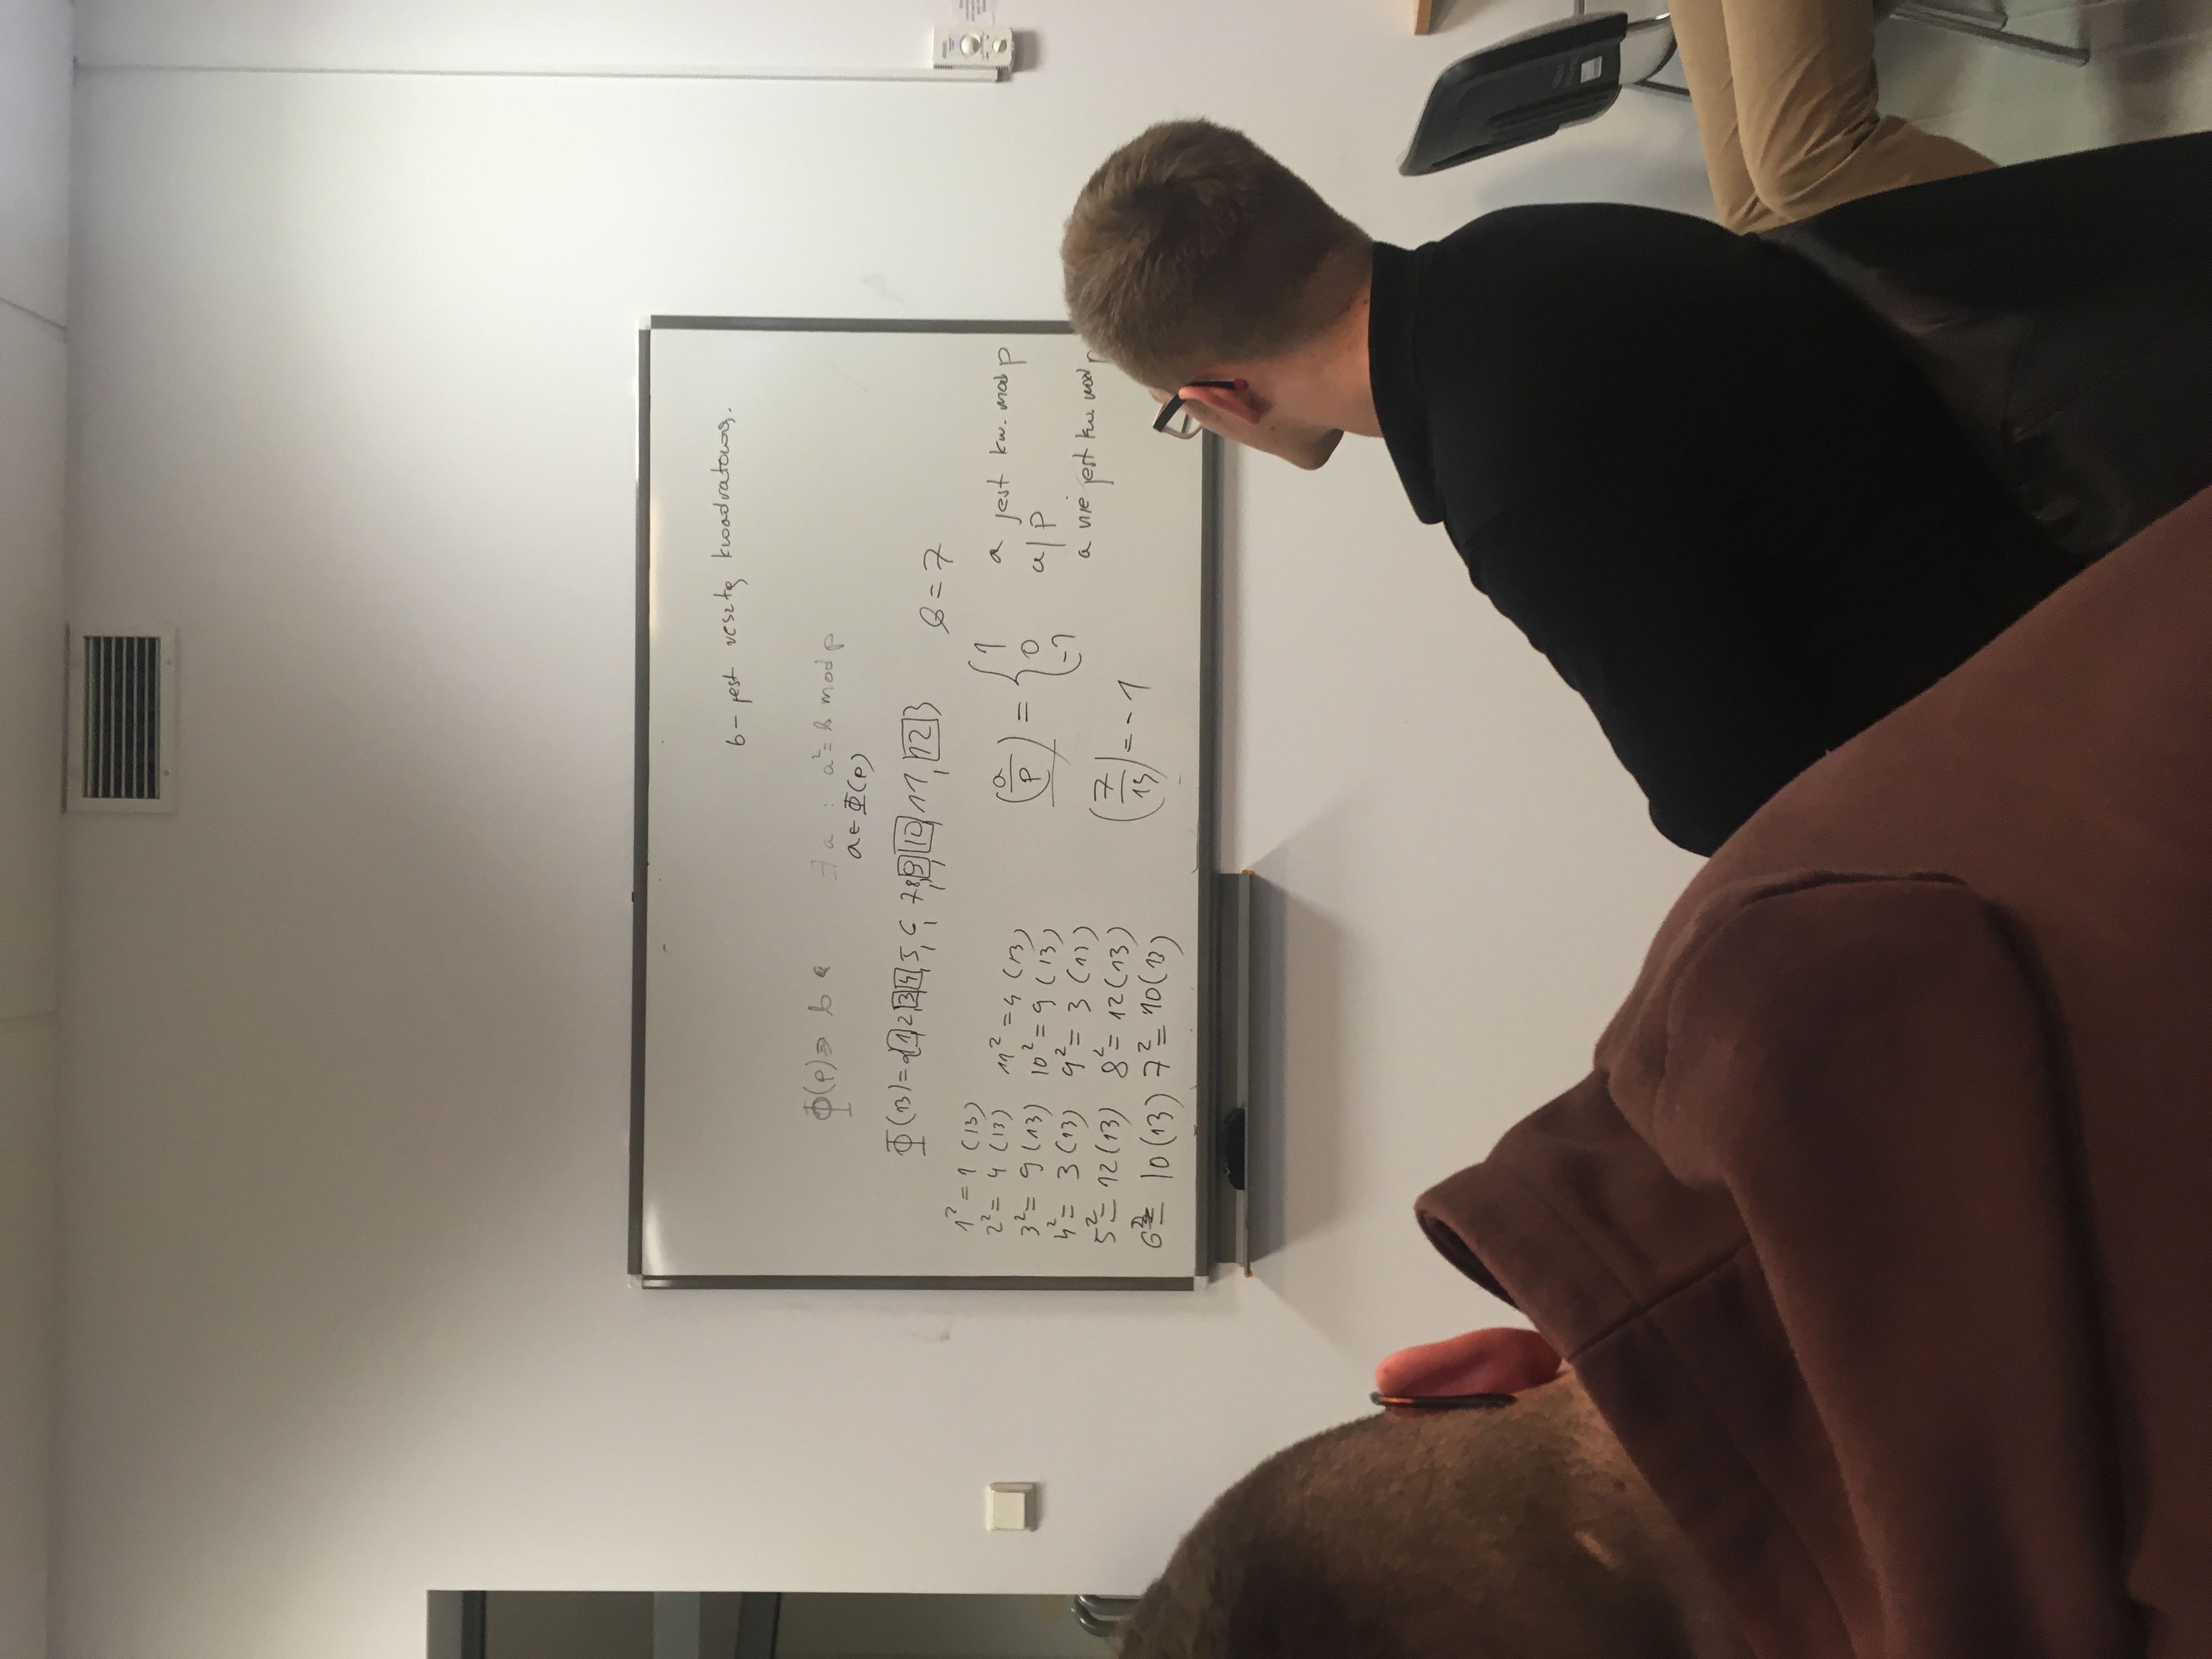 b - jest resztą kwadratową.
Φ(p) ∋ b
∃ a : a² = b mod p
a ∈ Φ(p)
Φ(13) = {1, 2, 3, 4, 5, 6, 7, 8, 9, 10, 11, 12}
b = 7
1² = 1 (13)
2² = 4 (13) 11² = 4 (13)
3² = 9 (13) 10² = 9 (13)
4² = 3 (13) 9² = 3 (13)
5² = 12 (13) 8² = 12 (13)
6² = 10 (13) 7² = 10 (13)
(a/p) = { 1 a jest kw. mod p
0 a/p
-1 a nie jest kw. mod p
(7/13) = -1